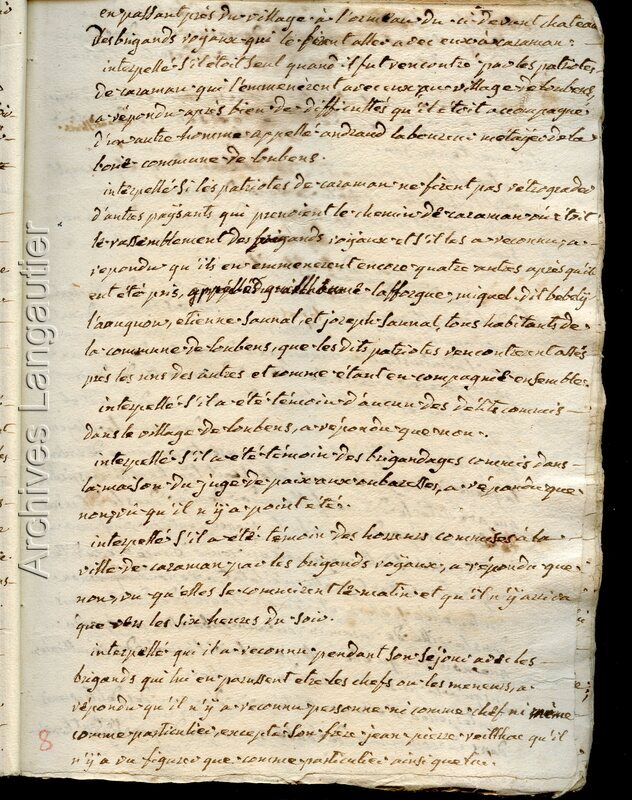 en passant près du village à l'ormeau du ci devant chateau
des brigands royaux qui le firent aller avec eux à caraman.
interpellé s'il était seul quand il fut rencontré par les patriotes
de caraman qui l'emmenèrent avec eux au village de loubens,
a répondu après bien de difficultés qu'il etoit accompagné
d'un autre homme appellé andraud laboureur metayer de la
borie commune de loubens.
interpellé si les patriotes de caraman ne firent pas rétrograder
d'autres paysants qui prenoient le chemin de caraman où étoit
le rassemblement des brigands royaux et s'il les a reconnu, a
repondu qu'ils en emmenerent encore quatre autres après qu'ils
ent été pris, appellés guilhaume lafforgue, miquel dit
l'auragnou, etienne Saunal et joseph Saunal, tous habitants de
la commune de loubens, que les dits patriotes rencontrerent assés
près les uns des autres et comme étant en compagnie ensembles.
interpellé s'il a été témoin d'aucun des delits commis
dans le village de loubens, a répondu que non.
interpellé s'il a été témoin des brigandages commis dans
la maison du juge de paix aux oubaresses, a répondu que
non, vu qu'il n'y a point été.
interpellé s'il a été témoin des horreurs commises à la
ville de caraman par les brigands royaux, a répondu que
non, vu qu'elles se commirent le matin et qu'il n'y arriva
que vers les six heures du soir.
interpellé qui il a reconnu pendant son séjour avec les
brigands qui lui en parussent etre les chefs ou les meneurs, a
répondu qu'il n'y a reconnu personne ni comme chef ni même
comme particulier excepté son frère jean pierre veilhac qu'il
n'y a vu figurer que comme particulier ainsi que lui.
8
Archives Langautier